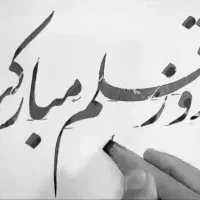 روز قلم مبارک